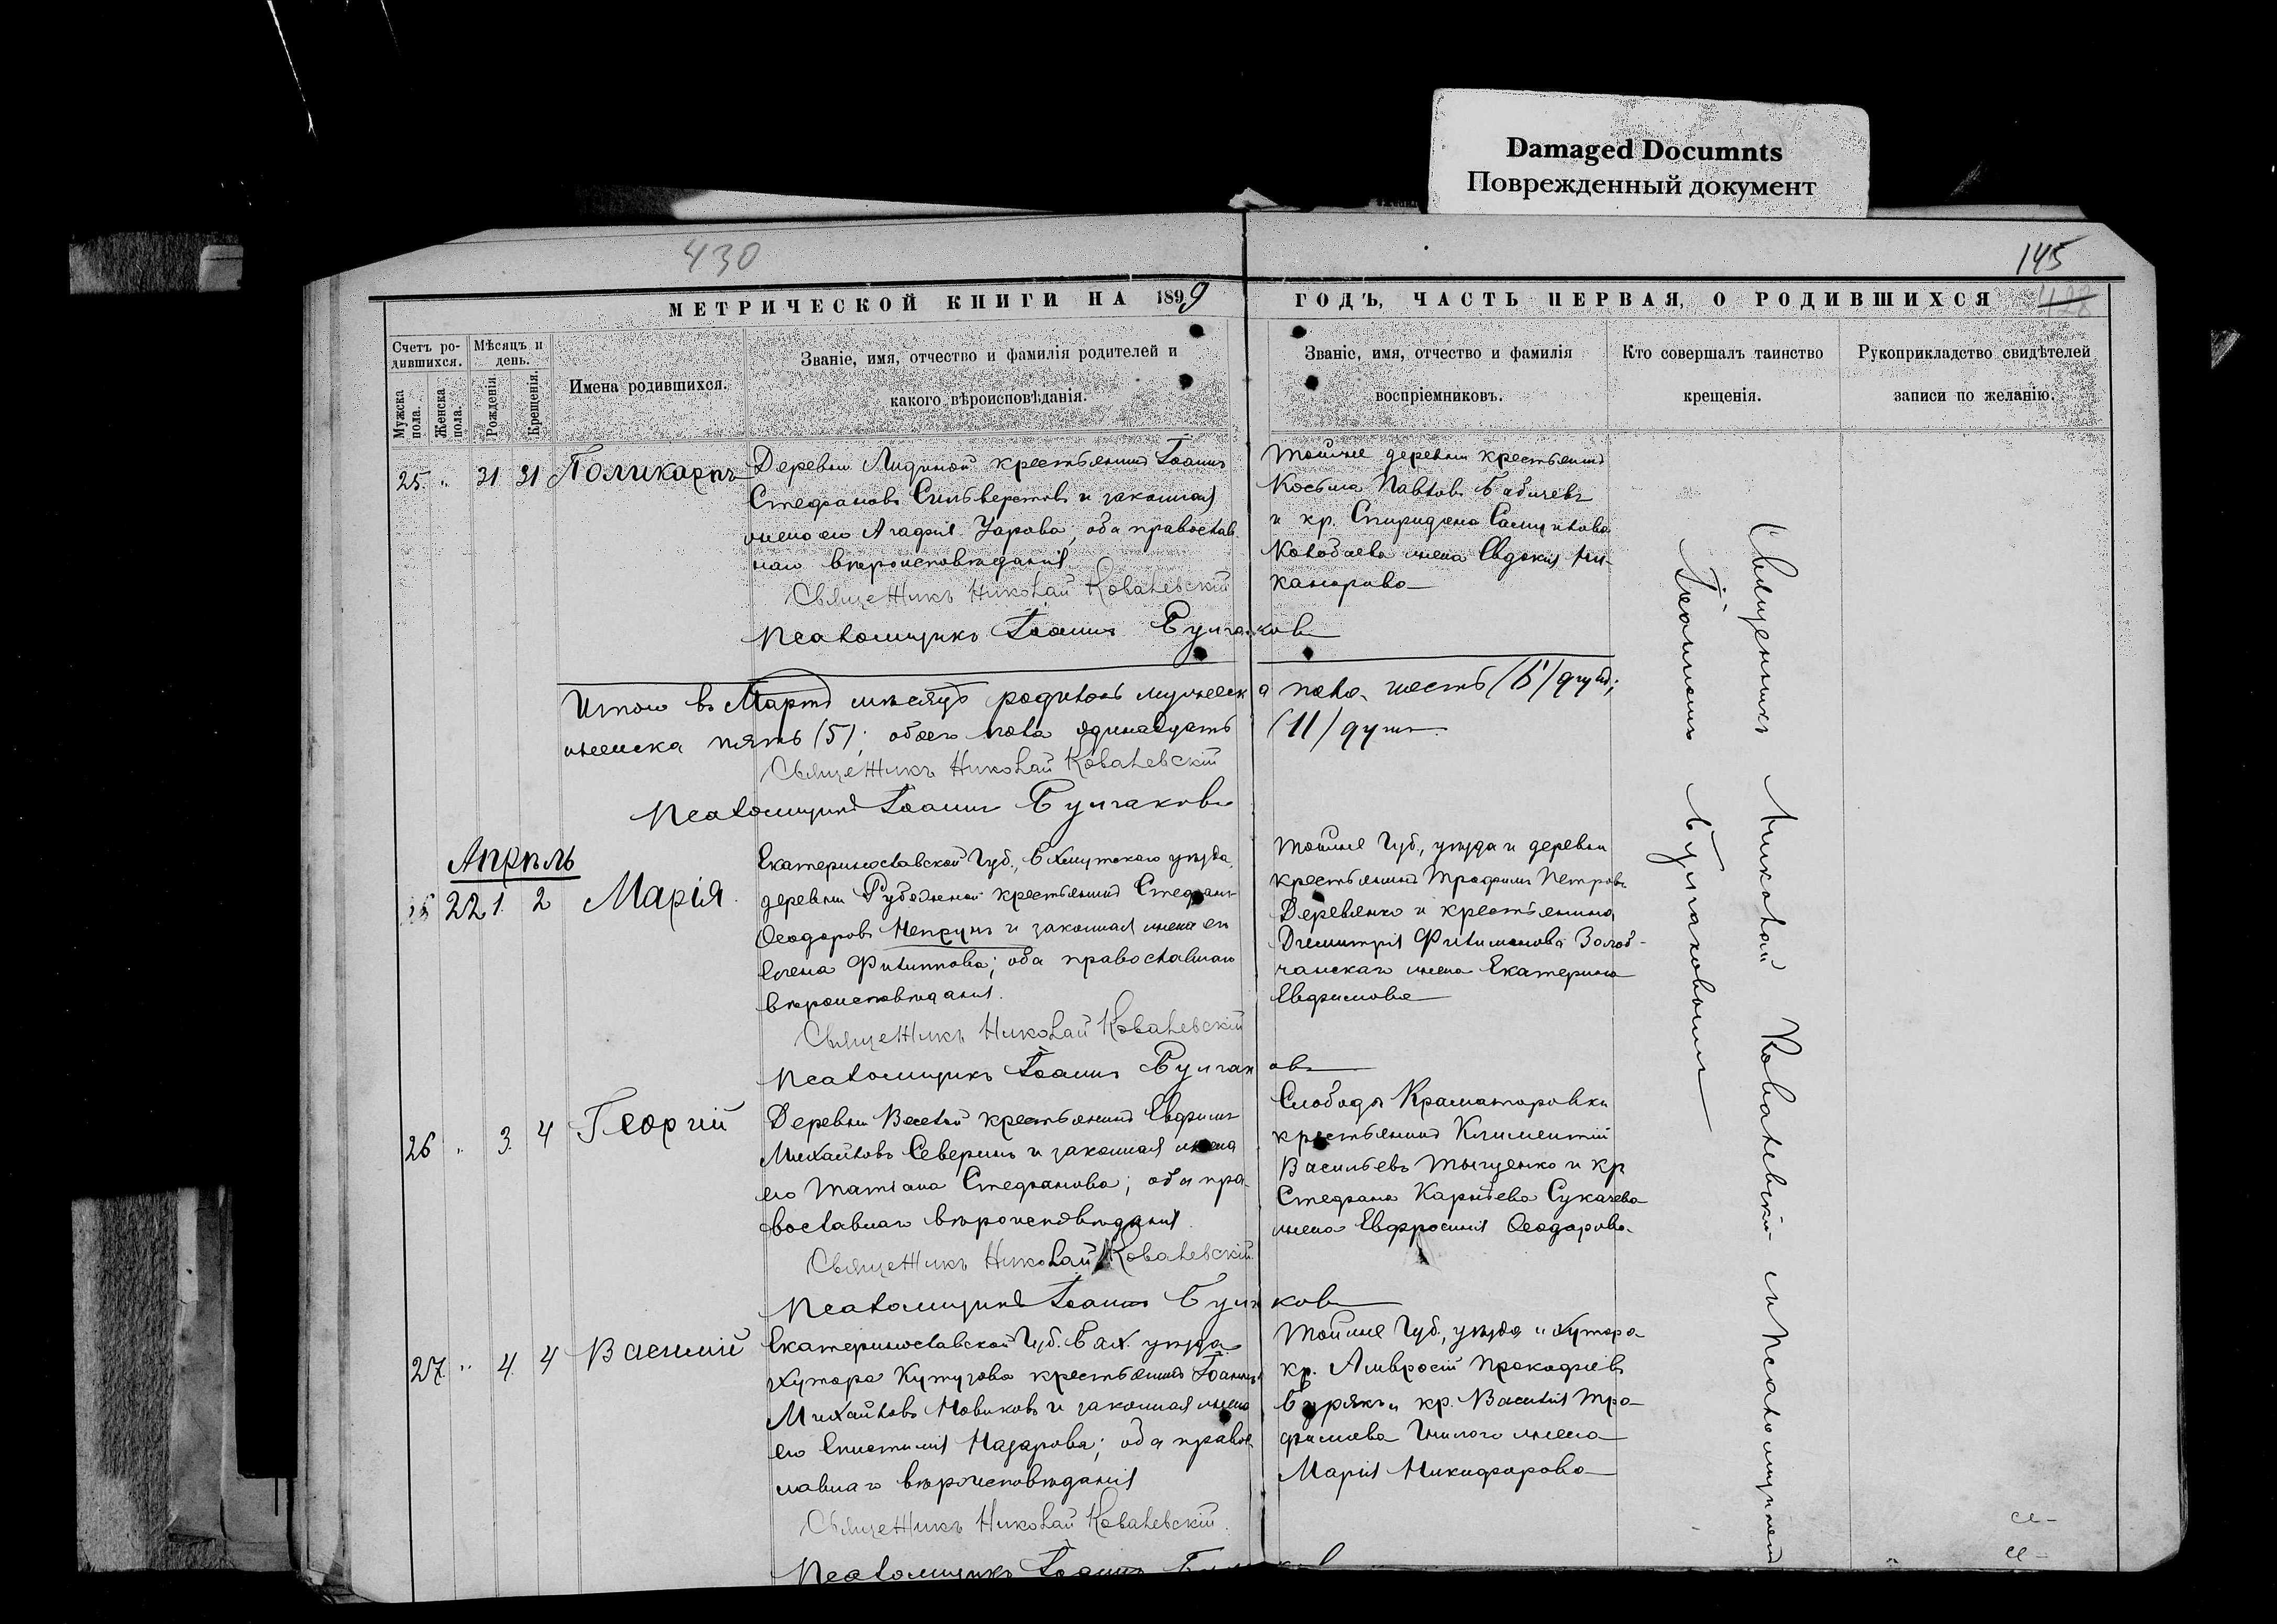 Damaged Documnts
Поврежденный документ
430
145
МЕТРИЧЕСКОЙ КНИГИ НА 1899
ГОДЪ, ЧАСТЬ ПЕРВАЯ, О РОДИВШИХСЯ
428
Счетъ ро-
дившихся.
Мѣсяцъ и
день.
Мужска
пола.
Женска
пола.
Рожденія
Крещенія.
Имена родившихся.
Званіе, имя, отчество и фамилія родителей и
какого вѣроисповѣданія.
Званіе, имя, отчество и фамилія
воспріемниковъ.
Кто совершалъ таинство
крещенія.
Рукоприкладство свидѣтелей
записи по желанію.
25. " 31 31 Поликарпъ
Деревни крестьянинъ Іоаннъ
Стефановъ Сильверстовъ и законная
жена его Агафія Уарова, оба православ
наго вѣроисповѣданія
Священникъ Николай Ковалевскій
Псаломщикъ Іоаннъ Булгаковъ
Тойже деревни крестьянинъ
Косьма Павловъ Бабичевъ
и кр. Спиридона Самуилова
жена Евдокія Ни-
канорова
Итого въ Мартѣ мѣсяцѣ родилось мужеска пола шесть (6) душъ;
женска пять (5); обоего пола одинадцать (11) душъ.
Священникъ Николай Ковалевскій
Псаломщикъ Іоаннъ Булгаковъ
Апрѣль
22 1. 2 Марія
Екатеринославской Губ., Бахмутскаго уѣзда,
деревни Рубежной крестьянинъ Стефанъ
Ѳеодоровъ и законная жена его
Елена Филиппова; оба православнаго
вѣроисповѣданія.
Священникъ Николай Ковалевскій
Псаломщикъ Іоаннъ Булгаковъ
Тойже Губ., уѣзда и деревни
крестьянинъ Трофимъ Петровъ
Деревянко и крестьянина
Димитрія Филимонова
жена Екатерина
Евфимова
26 " 3. 4 Георгій
Деревни Веселой крестьянинъ Евфимъ
Михайловъ Северинъ и законная жена
его Татіана Стефанова; оба пра-
вославнаго вѣроисповѣданія.
Священникъ Николай Ковалевскій
Псаломщикъ Іоаннъ Булгаковъ
Слободы Краматоровки
крестьянинъ Климентій
Васильевъ и кр
Стефана Сукачева
жена Евфросинія Ѳеодорова.
27. " 4. 4 Василій
Екатеринославской Губ. Бах. уѣзда
хутора Кутузова крестьянинъ Іоаннъ
Михайловъ Новиковъ и законная жена
его Епистимія Назарова; оба правос
лавнаго вѣроисповѣданія
Священникъ Николай Ковалевскій.
Псаломщикъ Іоаннъ
Тойже Губ., уѣзда и хутора
кр. Амвросій Прокофіевъ
Бурякъ и кр. Василія Тро-
фимова Гнилого жена
Марія Никифорова
Священникъ Николай Ковалевскій съ Псаломщикомъ
Іоанномъ Булгаковымъ